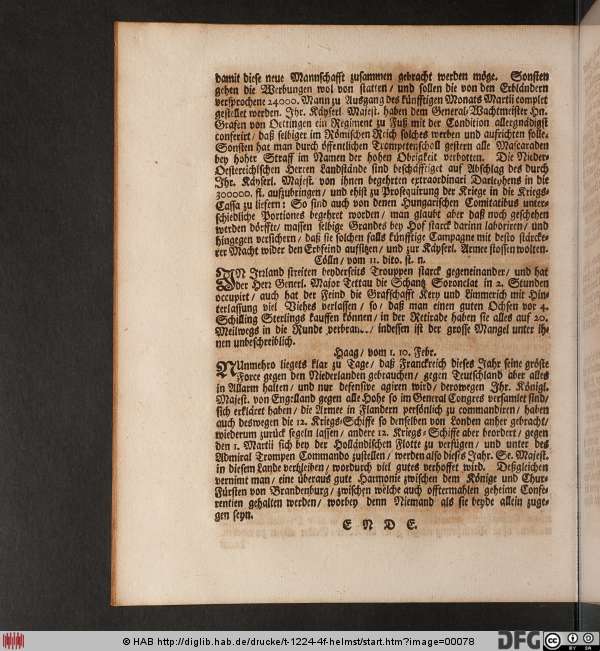 damit diese neue Mannschafft zusammen gebracht werden möge. Sonsten
gehen die Werbungen wol von statten / und sollen die von den Erbländern
versprochene 24000. Mann zu Ausgang des künfftigen Monats Martii complet
gestellet werden. Ihr. Käyserl. Majest. haben dem General-Wachtmeister Hn.
Grafen von Oettingen ein Regiment zu Fuß mit der Condition allergnädigst
conferirt / daß selbiger im Römischen Reich solches werben und aufrichten solle.
Sonsten hat man durch öffentlichen Trompetenschall gestern alle Mascaraden
bey hoher Straff im Namen der hohen Obrigkeit verbotten. Die Nieder-
Oestereichischen Herren Landstände sind beschäfftiget auf Abschlag des durch
Ihr. Käyserl. Majest. von ihnen begehrten extraordinari Darlehens in die
300000. fl. aufzubringen / und ehist zu Prosequirung der Kriege in die Kriegs-
Cassa zu liefern: So sind auch von denen Hungarischen Comitatibus unter-
schiedliche Portiones begehret worden / man glaubt aber daß noch geschehen
werden dörffte / massen selbige Grandes bey Hof starck darinn laboriren / und
hingegen versichern / daß sie solchen falls künfftige Campagne mit desto stärcke-
rer Macht wider den Erbfeind aufsitzen / und zur Käyserl. Armee stossen wolten.
Cölln / vom 11. dito. st. n.
IN Irzland streiten beyderseits Trouppen starck gegeneinander / und hat
der Herr Generl. Major Tettau die Schantz Soronclat in 2. Stunden
occupirt / auch hat der Feind die Grafschafft Kery und Limmerich mit Hin-
terlassung viel Viehes verlassen / so / daß man einen guten Ochsen vor 4.
Schilling Sterlings kauffen können / in der Retirade haben sie alles auf 20.
Meilwegs in die Runde verbran.. / indessen ist der grosse Mangel unter ih-
nen unbeschreiblich.
Haag / vom 1. 10. Febr.
NUnmehro liegets klar zu Tage / daß Franckreich dieses Jahr seine gröste
Force gegen den Niederlanden gebrauchen / gegen Teutschland aber alles
in Allarm halten / und nur defensive agiren wird / derowegen Ihr. Königl.
Majest. von Engelland gegen alle Hohe so im General Congres versamlet sind /
sich erkläret haben / die Armee in Flandern persönlich zu commandiren / haben
auch deswegen die 12. Kriegs-Schiffe so denselben von Londen anher gebracht /
wiederum zurück segeln lassen / andere 12. Kriegs-Schiffe aber beordert / gegen
den 1. Martii sich bey der Holländischen Flotte zu verfügen / und unter des
Admiral Trompen Commando zustellen / werden also dieses Jahr. Se. Majest.
in diesem Lande verbleiben / wordurch viel gutes verhoffet wird. Deßgleichen
vernimt man / eine überaus gute Harmonie zwischen dem Könige und Chur-
Fürsten von Brandenburg / zwischen welche auch offtermahlen geheime Confe-
rentien gehalten werden / worbey denn Niemand als sie beyde allein zuge-
gen seyn.
E N D E.
© HAB http://diglib.hab.de/drucke/t-1224-4f-helmst/start.htm?image=00078
DFG
cc
BY SA